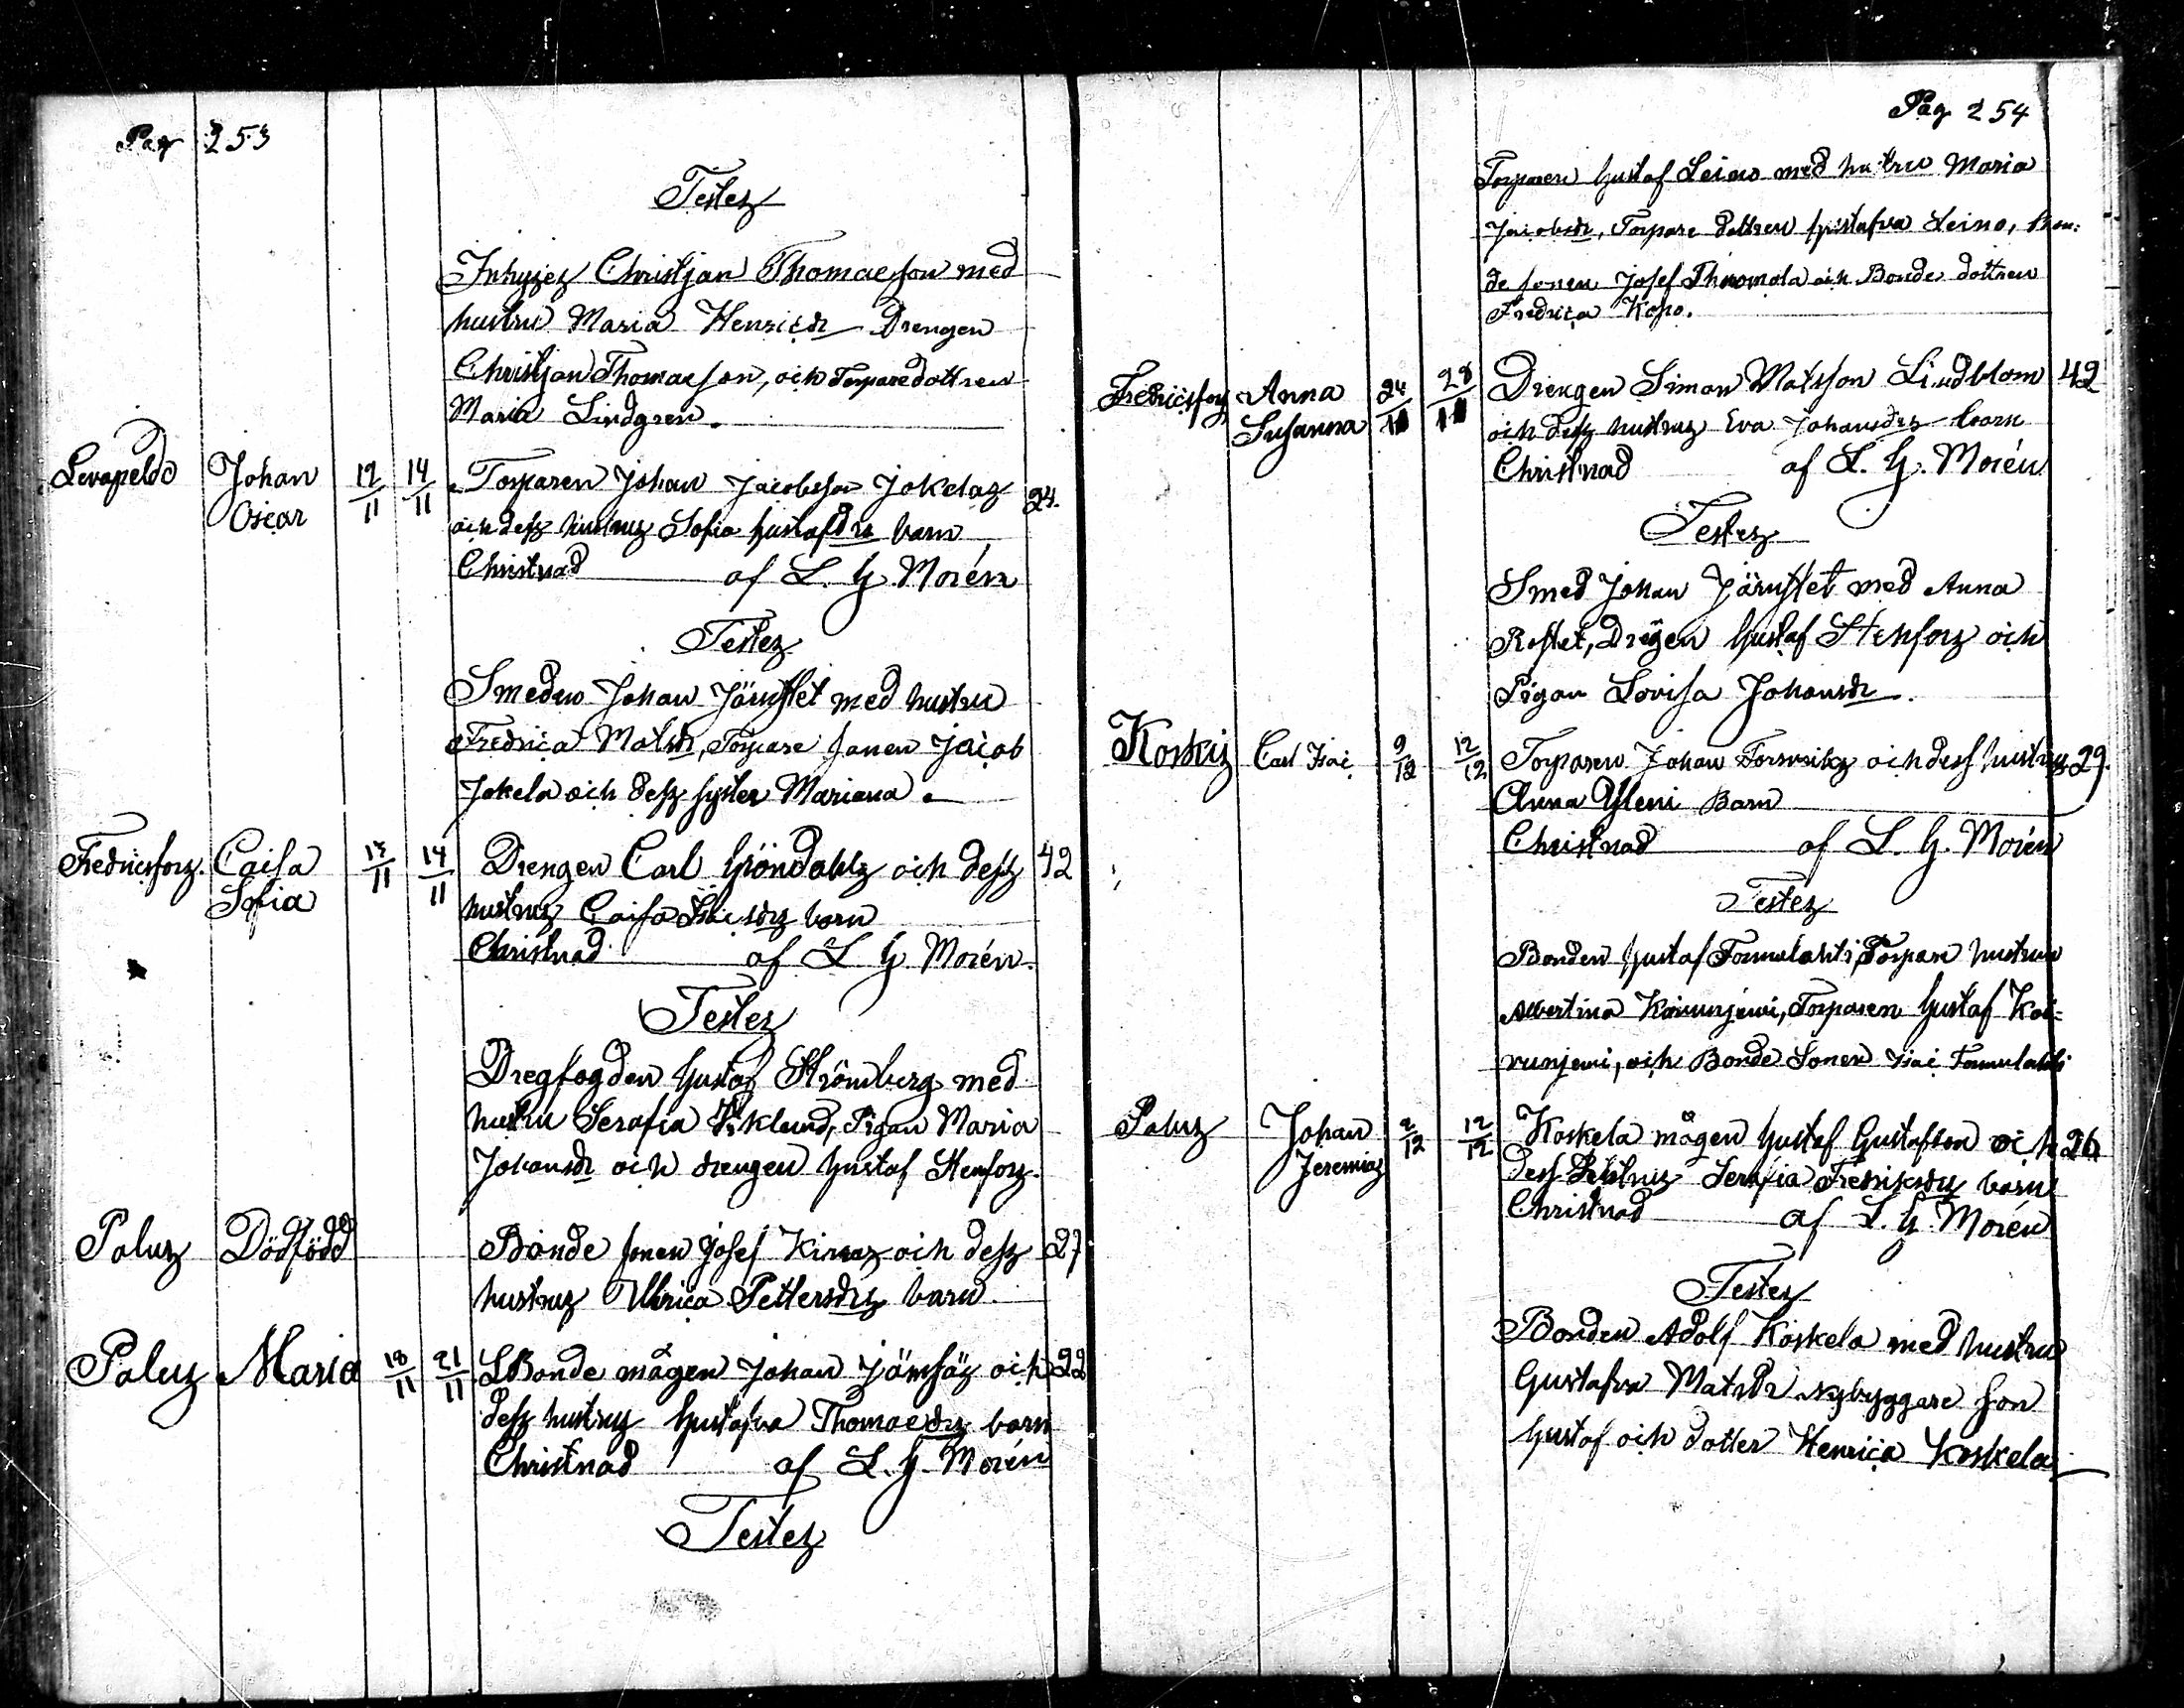 Pag 253
Testes
Inhyses Christjan Thomaesson med
hustru Maria Henricsdr Drengen
Christjan Thomaeson, och Torparedottren
Maria Lindgren.
Levapeldo Johan Oscar 12/11 14/11 Torparen Johan Jacobsson Jokelas 24.
och dess hustrus Sofia Gustafdrs barn
Christnad af L. G. Morén
Testes
Smeden Johan Järnstet med hustru
Fredrica Matsdr, Torpare sonen Jacob
Jokela och dess syster Mariana.
Fredricsfors. Caisa Sofia 13/11 14/11 Drengen Carl Gröndahls och dess 42
hustrus Caisa Isacsdrs barn
Christnad af L G. Morén.
Testes
Dregfogden Gustaf Strömberg med
hustru Serafia Viklund, Pigan Maria
Johansdr och drengen Gustaf Stenfors.
Palus Dödfödd Bonde sonen Josef och dess 27
hustrus Ulrica Pettersdrs barn.
Palus Maria 18/11 21/11 Bonde mågen Johan Jämsäs och 22
dess hustrus Gustafva Thomaedrs barn
Christnad af L. G. Morén
Testes
Pag 254
Torparen Gustaf Leino med hustru Maria
Jacobsdr, Torpare dottren Gustafva Leino, Bon:
de sonen Josef och Bonde dottren
Fredrica Kopo.
Fredricsfors Anna Susanna 24/11 28/11 Drengen Simon Matsson Lindblom 42
och dess hustrus Eva Johansdrs barn
Christnad af L. G. Morén
Testes
Smed Johan Järnstet med Anna
Rostet, Drengen Gustaf Stenfors och
Pigan Lovisa Johansdr.
Koskis Carl Isac 9/12 12/12 Torparen Johan Forsviks och dess hustrus 29.
Anna Yleni Barn
Christnad af L. G. Morén
Testes
Bonden Gustaf Tommelahti, Torpare hustrun
Albertina Kaivunjemi, Torparen Gustaf Kai=
vunjemi, och Bonde Sonen Isac Tommelahti
Palus Johan Jeremias 2/12 12/12 Koskela mågen Gustaf Gustafson och 26
dess hustrus Serafia Fredriksdrs barn
Christnad af L. G. Morén
Testes
Bonden Adolf Koskela med hustru
Gustafva Matsdr nybyggare son
Gustaf och dotter Henrica Koskela